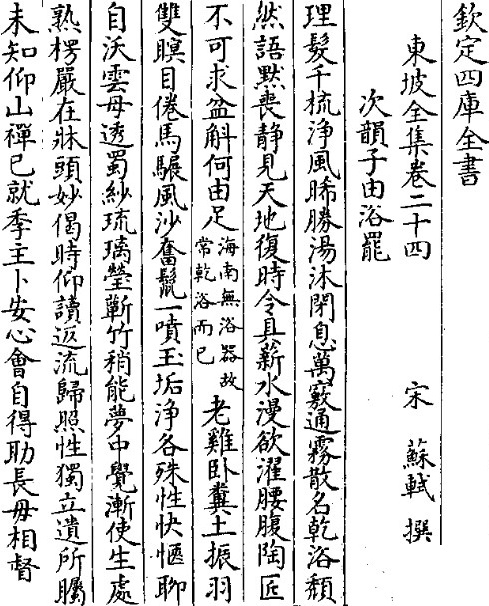 欽定四庫全書
東坡全集卷二十四
宋 蘇軾 撰
次韻子由浴罷
理髮千梳淨風晞勝湯沐閉息萬竅通霧散名乾浴頹
然語默喪靜見天地復時令具薪水漫欲濯腰腹陶匠
不可求盆斛何由足海南無浴器故常乾浴而已老雞卧糞土振羽
雙瞑目倦馬驟風沙奮鬛一噴玉垢淨各殊性快愜聊
自沃雲母透蜀紗琉璃瑩蘄竹稍能夢中覺漸使生處
熟楞嚴在牀頭妙偈時仰讀返流歸照性獨立遺所矚
未知仰山禪已就季主卜安心會自得助長毋相督